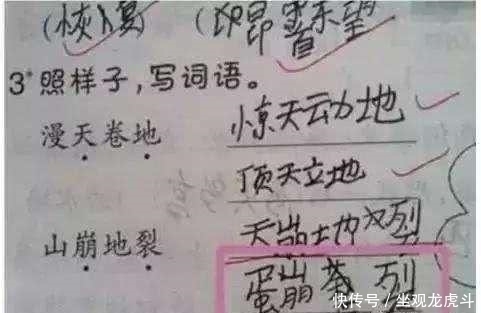 (恢复) (昂 望
3*照样子，写词语。
漫天卷地 惊天动地
顶天立地
山崩地裂 天崩地列
蛋崩 列
快传号/坐观龙虎斗